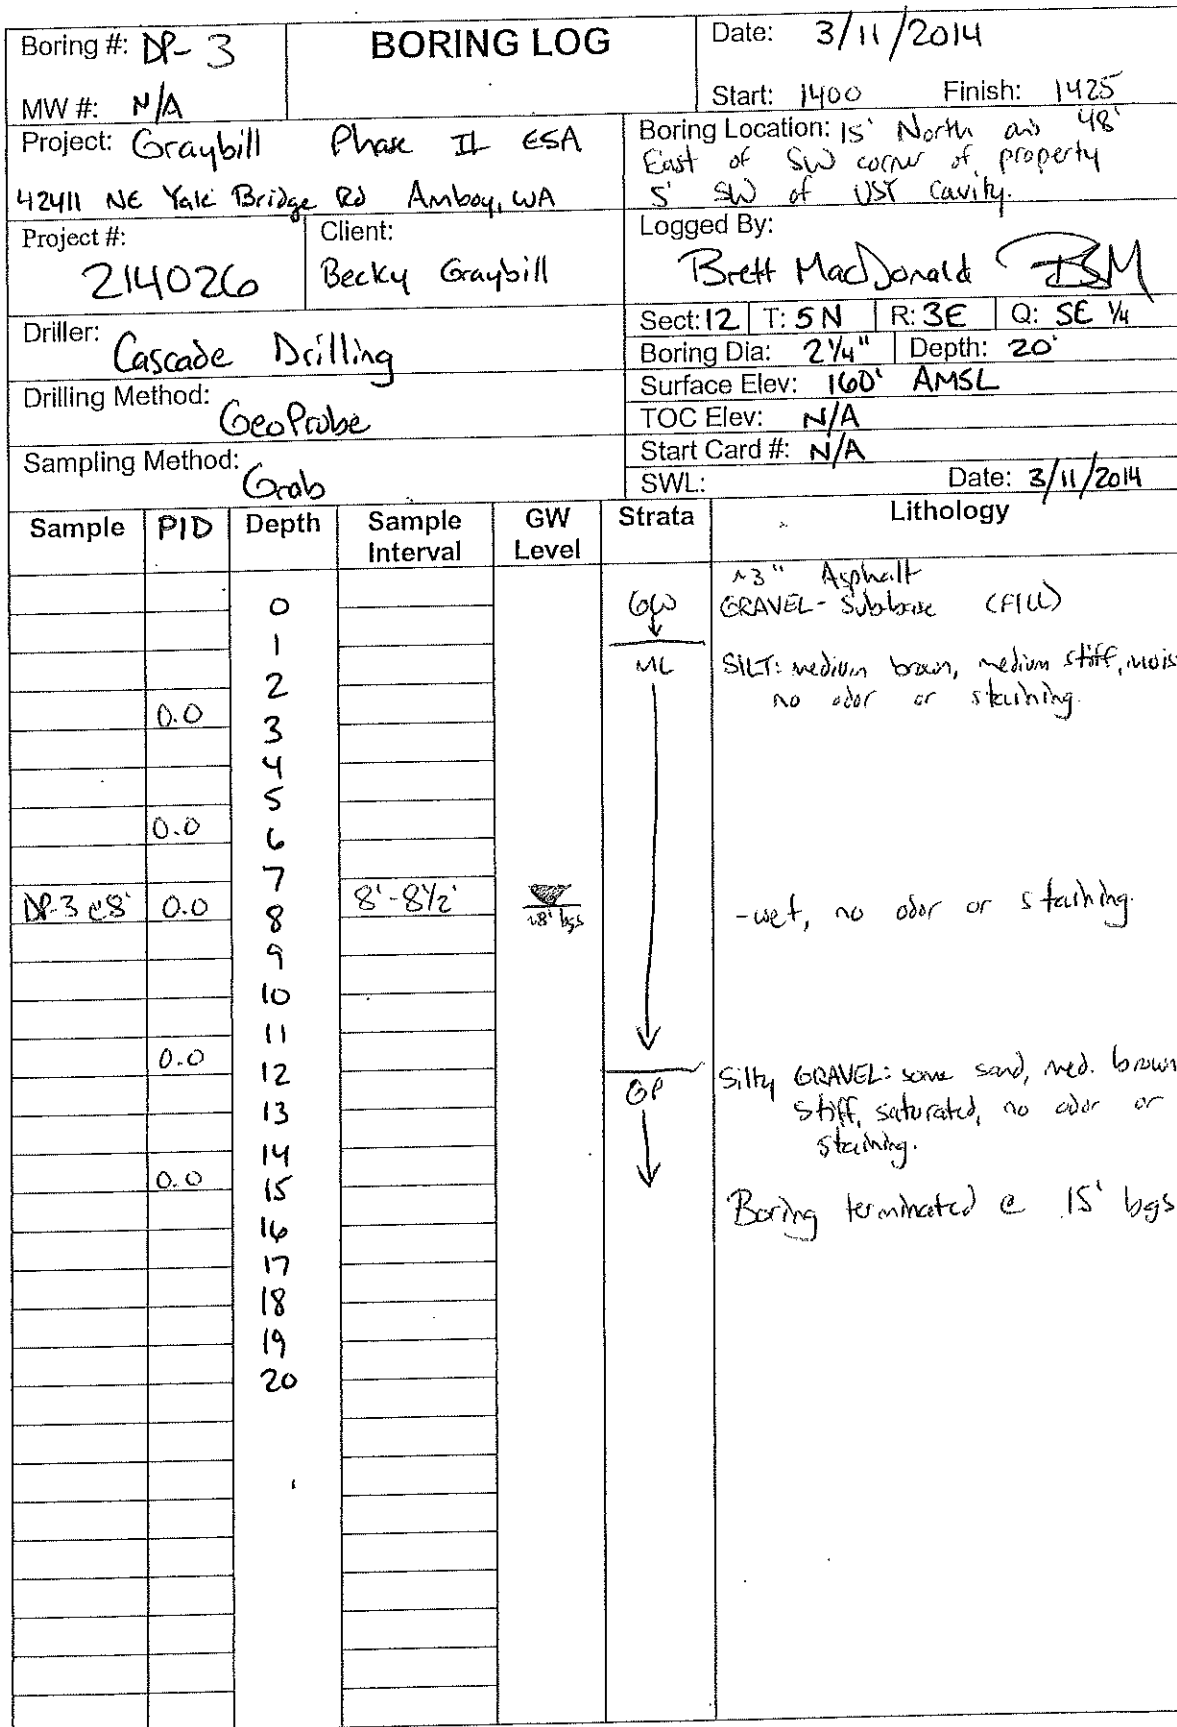 Boring #: DP-3
BORING LOG
Date: 3/11/2014
MW #: N/A
Start: 1400 Finish: 1425
Project: Graybill Phase II ESA
42411 NE Yale Bridge Rd Amboy, WA
Boring Location: 15' North and 48'
East of SW corner of property
5' SW of UST cavity.
Project #:
214026
Client:
Becky Graybill
Logged By:
Brett MacDonald BSM
Driller:
Cascade Drilling
Sect: 12 T: 5N R: 3E Q: SE 1/4
Boring Dia: 2 1/4" Depth: 20'
Drilling Method:
GeoProbe
Surface Elev: 160' AMSL
TOC Elev: N/A
Start Card #: N/A
Sampling Method:
Grab
SWL: Date: 3/11/2014
Sample PID Depth Sample Interval GW Level Strata Lithology
~3" Asphalt
0 GW GRAVEL - Subbase (FILL)
1
ML SILT: medium brown, medium stiff, mois
2 no odor or staining.
0.0
3
4
5
0.0
6
7
DP-3 @ 8' 0.0 8 8'-8 1/2' ~8' bgs -wet, no odor or staining.
9
10
11
0.0
12 Silty GRAVEL: some sand, med. brown
GP stiff, saturated, no odor or
13 staining.
14
0.0
15 Boring terminated @ 15' bgs
16
17
18
19
20